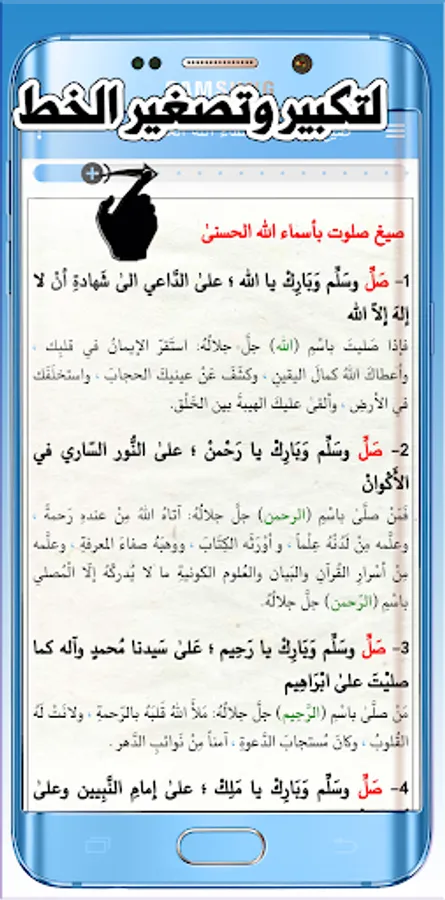 SAMSUNG
لتكبير وتصغير الخط
صيغ صلوت بأسماء الله الحسنىٰ
1- صَلِّ وسَلِّم وَبَارِكْ يا الله ؛ علىٰ الدَّاعي الىٰ شَهادةِ أنْ لا
إلهَ إلاّ الله
فإذا صَليتَ باسْمِ (الله) جلَّ جلالُهُ: استَقرّ الإيمانُ في قلبِك ،
وأعطاكَ اللهُ كمالَ اليقينِ ، وكشَفَ عَنْ عينيكَ الحجابَ ، واستخلَفَك
في الأرضِ ، وألقىٰ عليكَ الهيبةَ بين الخَلْق.
2- صَلِّ وسَلِّم وَبَارِكْ يا رَحْمنْ ؛ علىٰ النُّور السّاري في
الأَكْوانْ
فَمَنْ صلَّىٰ باسْمِ (الرحمن) جلَّ جلالُهُ: آتاهُ اللهُ مِنْ عندهِ رَحمةً ،
وعلَّمه مِنْ لَدُنْهُ عِلْماً ، و أوْرَثَه الكِتَابَ ، ووهَبَهُ صفاءَ المعرفةِ ، وعلَّمه
مِنْ أسْرارِ القُرآنِ والبَيان والعُلوم الكونيةِ ما لا يُدركُهُ إلّا المُصلي
باسْمِ (الرّحمن) جلَّ جلالهُ.
3- صَلِّ وسَلِّم وَبَارِكْ يا رَحِيم ؛ عَلىٰ سَيدنا مُحمدٍ وآله كما
صليْتَ علىٰ ابْرَاهِيم
مَنْ صلَّىٰ باسْمِ (الرَّحِيم) جلَّ جلالُهُ: مَلأَ اللهُ قَلبَهُ بالرّحمةِ ، ولانَتْ لَهُ
القُلوبُ ، وكانَ مُستجابَ الدَّعوةِ ، آمناً مِنْ نَوائبِ الدَّهرِ .
4- صَلِّ وسَلِّم وَبَارِكْ يا مَلِكْ ؛ علىٰ إمامِ النَّبِيين وعلىٰ